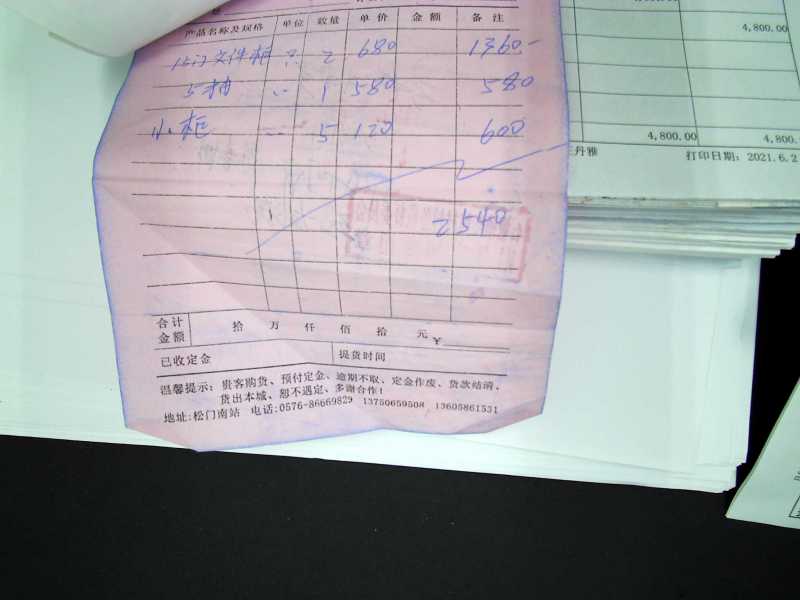 4,800.00
产品名称及规格 单位 数量 单价 金额 备注
门文件柜 2 680 1360-
5抽 〃 1 580 580
小柜 〃 5 120 600
4,800.00 4,800.
丹雅 打印日期: 2021.6.2
2540
合计金额 拾 万 仟 佰 拾 元 ¥
已收定金 提货时间
温馨提示: 贵客购货、预付定金、逾期不取、定金作废、货款结清、
货出本城、恕不退定、多谢合作!
地址:松门南站 电话:0576-86669829 13750659508 13605861531